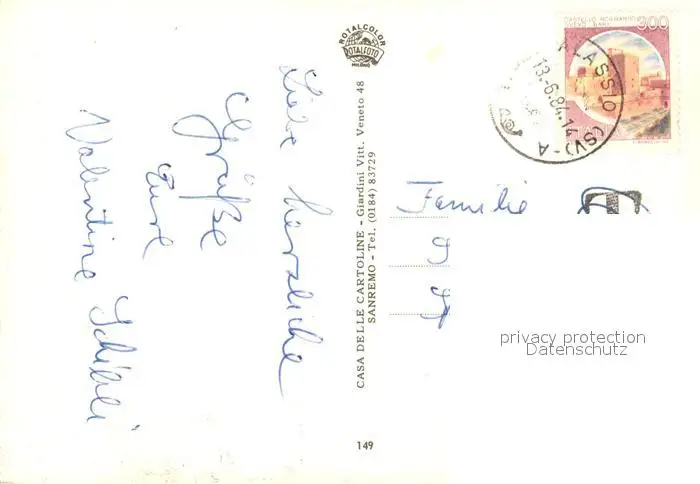 Liebe herzliche
Grüße
Eure
Valentine
ROTALCOLOR
ROTALFOTO
MILANO
CASA DELLE CARTOLINE - Giardini Vitt. Veneto 48
SANREMO - Tel. (0184) 83729
149
300
ALASSIO (SV) - A
13.-6.84.-14
Familie
privacy protection
Datenschutz